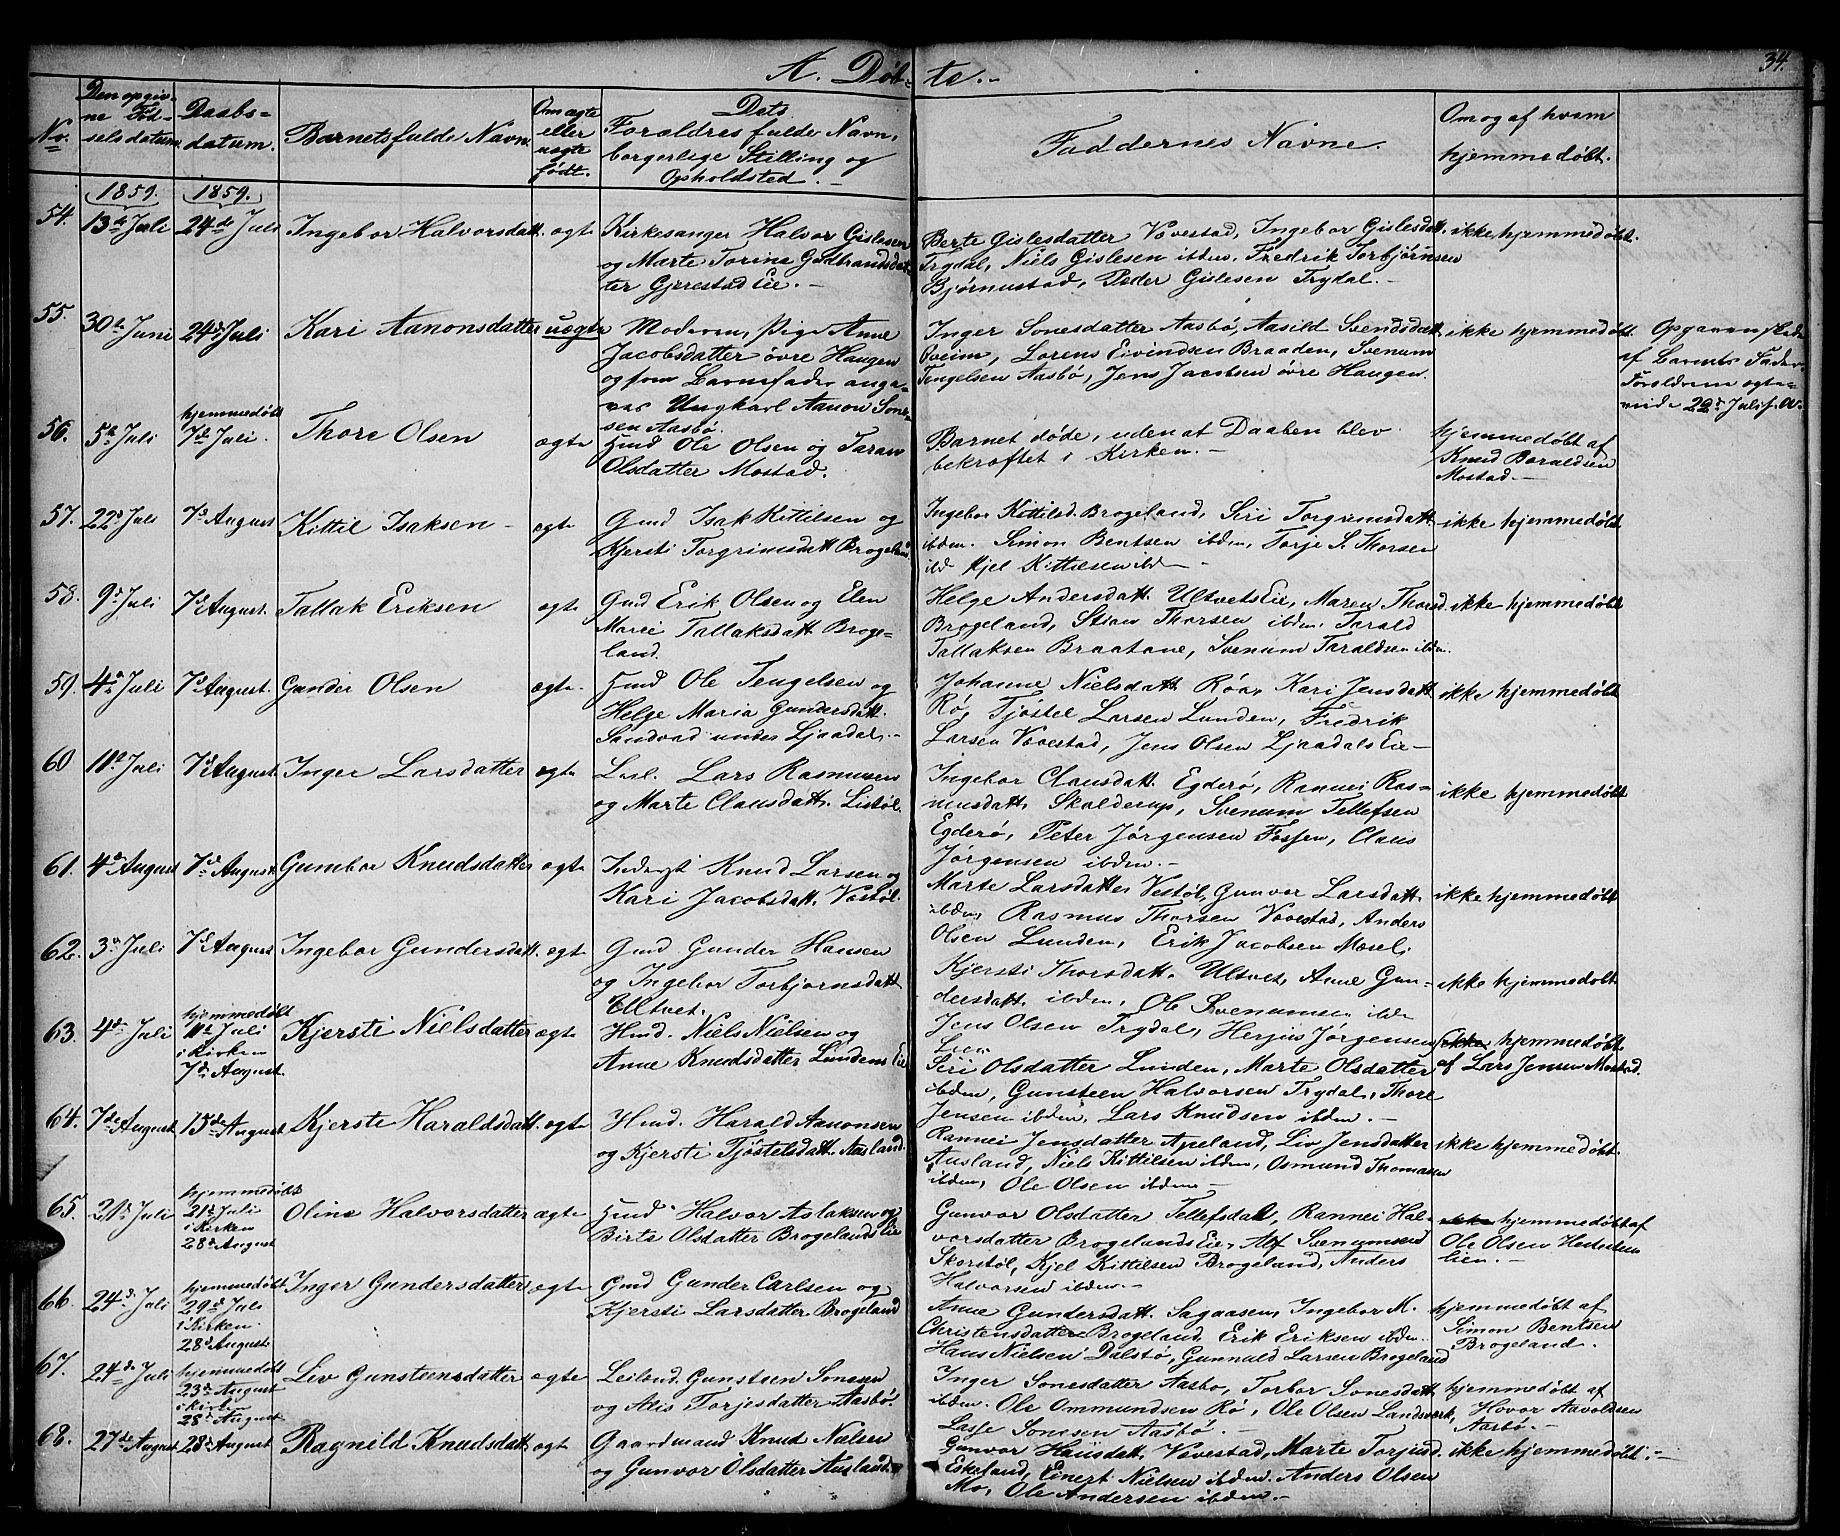 34.
A. Døb-te.-
No.
Den opgiv-
ne Fød-
selsdatum.
Daabs-
datum.
Barnets fulde Navn.
Om ægte
eller
uægte
født.
Dets
Forældres fulde Navn,
borgerlige Stilling og
Opholdsted.-
Faddernes Navne.
Om og af hvem
hjemmedøbt.
1859. 1859.
54. 13de Juli 24de Juli Ingebor Halvorsdatt. ægte
Kirkesanger Halvor Gislesen
og Marte Torine Guldbrandsdat-
ter Gjerestad Eie.-
Berte Gislesdatter Vovestad, Ingebor Gislesdatt.
Trydal, Niels Gislesen ibden, Fredrik Torbjørnsen
Bjørnustad, Peder Gislesen Trydal.-
ikke hjemmedøbt.
55. 30te Juni 24de Juli Kari Aanonsdatter uægte
Moderen, Pige Anne
Jacobsdatter øvre Haugen
og som Barnefader anga-
ves Ungkarl Aanon Sone-
sen Aasbø.
Inger Sonesdatter Aasbø, Aasild Svendsdatt.
Sveim, Lorens Eivindsen Braaden, Svenum
Tengelsen Aasbø, Jens Jacobsen øvre Haugen.
ikke hjemmedøbt.
Opgaven
af Barnets Fader.
Forældrene ægte-
viede 22de Juli
56. 5te Juli hjemmedøbt
7de Juli. Thore Olsen ægte
Hmd Ole Olsen og Taran
Olsdatter Mostad.
Barnet døde, uden at Daaben blev
bekræftet i Kirken.-
hjemmedøbt af
Knud Baraldsen
Mostad.-
57. 22de Juli 7de August Kittil Isaksen - ægte
Gmd Isak Kittilsen og
Kjersti Torgrimsdatt Brogeland
Ingebor Kittilsd. Brogeland, Siri Torgrimsdatt
ibden. Simon Bentsen ibden, Torje S. Thorsen
ibd Kjel Kittilsen ibdn-
ikke hjemmedøbt
58. 9de Juli 7de August. Tallak Eriksen ægte
Gmd Erik Olsen og Elen
Marei Tallaksdatt Broge-
land.
Helge Andersdatt. Ultvets Eie, Maren Thorsd.
Brogeland, Stian Thorsen ibden, Tarald
Tallaksen Braatane, Svenum Taraldsen ibden.
ikke hjemmedøbt
59. 4de Juli 7de August. Gunder Olsen ægte.
Hmd Ole Tengelsen og
Helge Maria Gundersdatt.
Sandvad under Ljaadal.-
Johanne Nielsdatt Røa, Kari Jensdatt
Rø, Tjøstel Larsen Lunden, Fredrik
Larsen Vovestad, Jens Olsen Ljaadals Eie-
ikke hjemmedøbt
60 11te Juli 7de August. Inger Larsdatter ægte
Leil. Lars Rasmusen
og Marte Clausdatt. Listøl.
Ingebor Clausdatt. Egderø, Rannei Ras-
musdatt. Skalderup, Svenum Tellefsen
Egderø, Peter Jørgensen Fosjen, Claus
Jørgensen ibden.-
ikke hjemmedøbt
61. 4de August 7de August Gunebor Knudsdatter ægte
Inderst Knud Larsen og
Kari Jacobsdatt. Vestøl.
Marte Larsdatter Vestøl, Gunvor Larsdatt.
ibden, Rasmus Thorsen Vovestad, Anders
Olsen Lunden, Erik Jacobsen Mosel.
ikke hjemmedøbt
62. 3de Juli 7de August Ingebor Gundersdatt. ægte
Gmd Gunder Hansen
og Ingebor Torbjornsdatt
Ultvet.
Kjersti Thorsdatt. Ultvet, Anne Gun-
dersdatt. ibden, Ole Svenumsen ibdn
Jens Olsen Trydal, Herjus Jørgensen
Lien
ikke hjemmedøbt
63. 4de Juli hjemmedøbt
11te Juli
i Kirken
7de August. Kjersti Nielsdatter ægte
Hmd. Niels Nielsen og
Anne Knudsdatter Lundens Eie
Siri Olsdatter Lunden, Marte Olsdatter
ibden, Gunsteen Halvorsen Trydal, Thore
Jensen ibden, Lars Knudsen ibden.-
ikke hjemmedøbt
af Lars Jensen Mostad.
64. 7de August 15de August Kjerste Haraldsdatt. ægte
Hmd. Harald Aanonsen
og Kjersti Tjøstelsdatt. Aasland
Rannei Jensdatter Apeland, Liv Jensdatter
Aasland, Niels Kittilsen ibden, Osmund Thomasen
ibden, Ole Olsen ibden-
ikke hjemmedøbt.
65. 21de Juli hjemmedøbt
21de Juli
i Kirken
28de August Oline Halvorsdatter ægte
Hmd Halvor Aslaksen og
Birte Olsdatter Brogelands Eie
Gunvor Olsdatter Tellefsdal, Rannei Hal-
vorsdatter Brogelands Eie, Alf Svenumsen
Skorstøl, Kjel Kittilsen Brogeland, Anders
Halvorsen ibden.-
ikke hjemmedøbt af
Ole Olsen
lien.
66. 24de Juli hjemmedøbt
29de Juli
i Kirken.
28de August Inger Gundersdatter ægte
Gmd Gunder Carlsen og
Kjersti Larsdatter Brogeland
Anne Gundersdatt. Sagaasen, Ingebor M.
Christensdatter Brogeland, Erik Eriksen ibden.
Hans Nielsen Dalstø, Gunnuld Larsen Brogeland
hjemmedøbt af
Simon Bentsen
Brogeland.
67. 24de Juli hjemmedøbt
23de August
i Kirken
28de August Liv Gunsteensdatter ægte
Leilænd. Gunsteen Sonesen
og Alis Torjesdatter Aasbø.
Inger Sonesdatter Aasbø, Torbor Sonesdatt
ibden. Ole Ommundsen Rø, Ole Olsen Landsverk,
Lasse Sonesen Aasbø.-
hjemmedøbt af
Hovor Aavoldsen
Aasbø.-
68. 27de August 28de August Ragnild Knudsdatt. ægte
Gaardmand Knud Nielsen
og Gunvor Olsdatter Aasland
Gunvor Hansdatt. Vovestad, Marte Torjusd.
Eskeland, Einert Nielsen ibden. Anders Olsen
Mo, Ole Andersen ibden.-
ikke hjemmedøbt.-